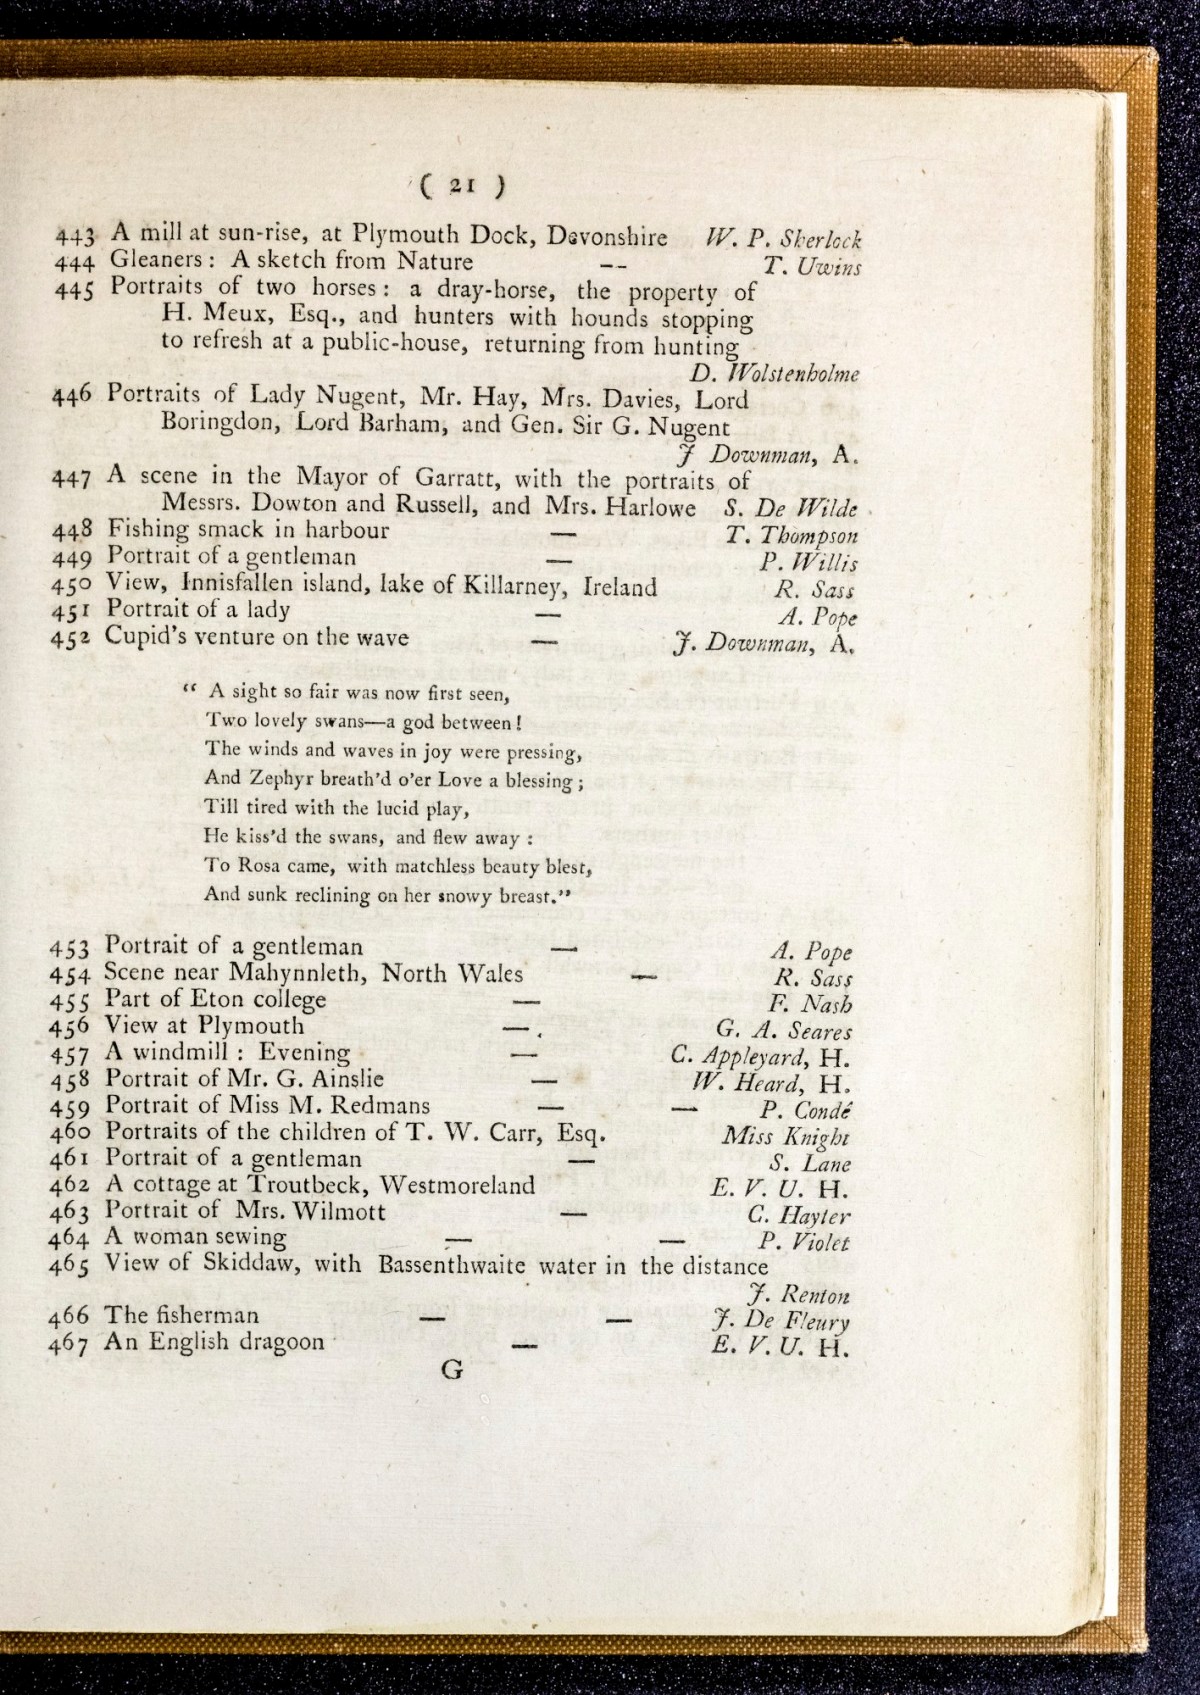 ( 21 )
443 A mill at sun-rise, at Plymouth Dock, Devonshire W. P. Sherlock
444 Gleaners : A sketch from Nature -- T. Uwins
445 Portraits of two horses : a dray-horse, the property of
H. Meux, Esq., and hunters with hounds stopping
to refresh at a public-house, returning from hunting
D. Wolstenholme
446 Portraits of Lady Nugent, Mr. Hay, Mrs. Davies, Lord
Boringdon, Lord Barham, and Gen. Sir G. Nugent
J Downman, A.
447 A scene in the Mayor of Garratt, with the portraits of
Messrs. Dowton and Russell, and Mrs. Harlowe S. De Wilde
448 Fishing smack in harbour — T. Thompson
449 Portrait of a gentleman — P. Willis
450 View, Innisfallen island, lake of Killarney, Ireland R. Sass
451 Portrait of a lady — A. Pope
452 Cupid's venture on the wave — J. Downman, A.
“ A sight so fair was now first seen,
Two lovely swans—a god between !
The winds and waves in joy were pressing,
And Zephyr breath'd o'er Love a blessing ;
Till tired with the lucid play,
He kiss'd the swans, and flew away :
To Rosa came, with matchless beauty blest,
And sunk reclining on her snowy breast.”
453 Portrait of a gentleman — A. Pope
454 Scene near Mahynnleth, North Wales — R. Sass
455 Part of Eton college — F. Nash
456 View at Plymouth — G. A. Seares
457 A windmill : Evening — C. Appleyard, H.
458 Portrait of Mr. G. Ainslie — W. Heard, H.
459 Portrait of Miss M. Redmans — — P. Condé
460 Portraits of the children of T. W. Carr, Esq. Miss Knight
461 Portrait of a gentleman — S. Lane
462 A cottage at Troutbeck, Westmoreland E. V. U. H.
463 Portrait of Mrs. Wilmott — C. Hayter
464 A woman sewing — — P. Violet
465 View of Skiddaw, with Bassenthwaite water in the distance
J. Renton
466 The fisherman — — J. De Fleury
467 An English dragoon — E. V. U. H.
G